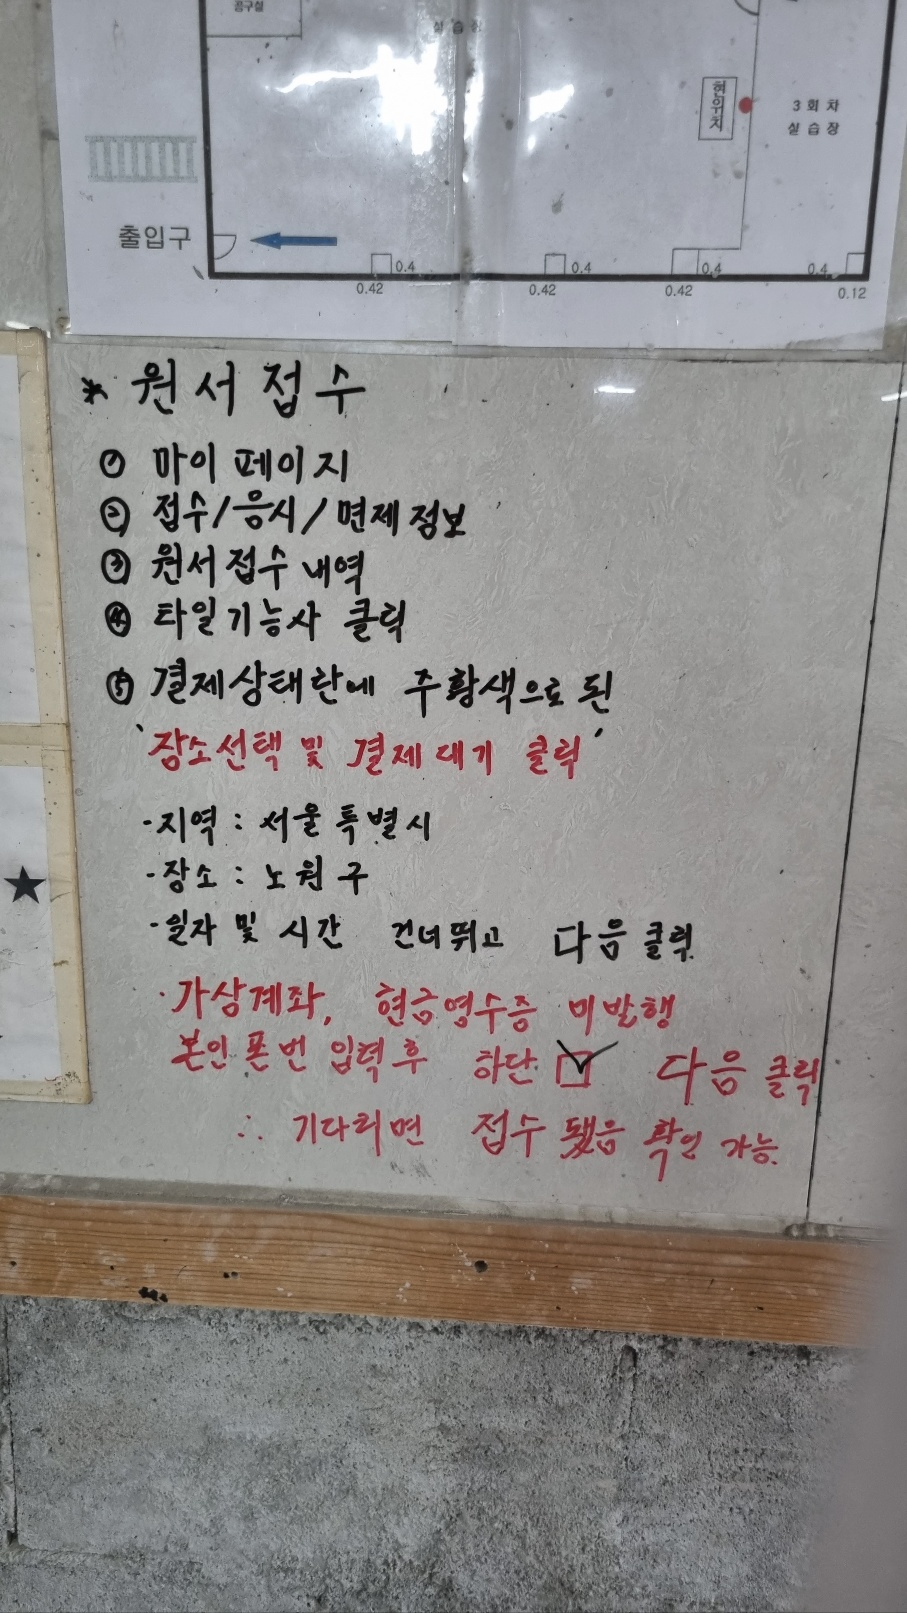 공구실
실 습 장
현위치
3 회 차
실 습 장
출입구
0.4
0.4
0.4
0.4
0.42
0.42
0.42
0.12
* 원서접수
① 마이 페이지
② 접수/응시/면제정보
③ 원서접수 내역
④ 타일기능사 클릭
⑤ 결제상태란에 주황색으로 된
'장소선택 및 결제대기 클릭'
-지역 : 서울특별시
-장소 : 노원구
-일자 및 시간 건너뛰고 다음 클릭
·가상계좌, 현금영수증 미발행
본인 폰번 입력 후 하단 ☑ 다음 클릭
∴ 기다리면 접수 됐음 확인 가능.